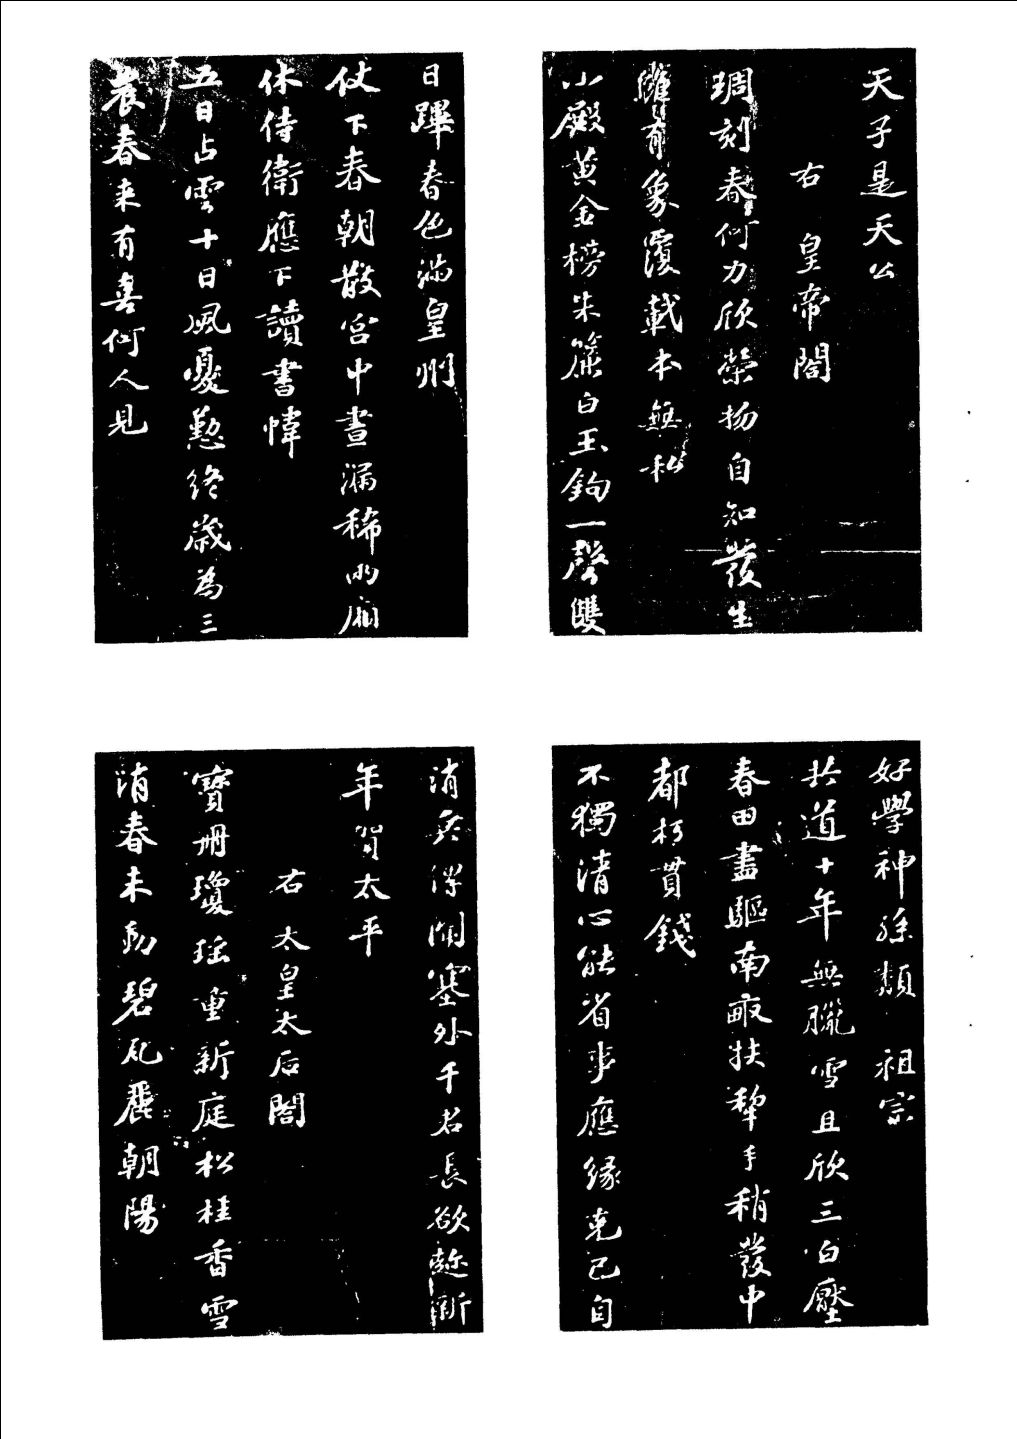 天子是天公
右 皇帝閣
琱刻春何力欣榮物自知發生
雖有象覆載本無私
小殿黃金榜朱簾白玉鉤一聲雙
日蹕春色滿皇州
仗下春朝散宮中晝漏稀兩廂
休侍衛應下讀書幃
五日占雲十日風憂懃終歲為三
農春来有喜何人見
好學神孫類 祖宗
共道十年無臘雪且欣三白壓
春田盡驅南畝扶犂手稍發中
都朽貫錢
不獨清心能省事應緣克己自
消兵傳聞塞外千君長欲趂新
年賀太平
右 太皇太后閣
寶冊瓊瑤重新庭松桂香雪
消春未動碧瓦麗朝陽